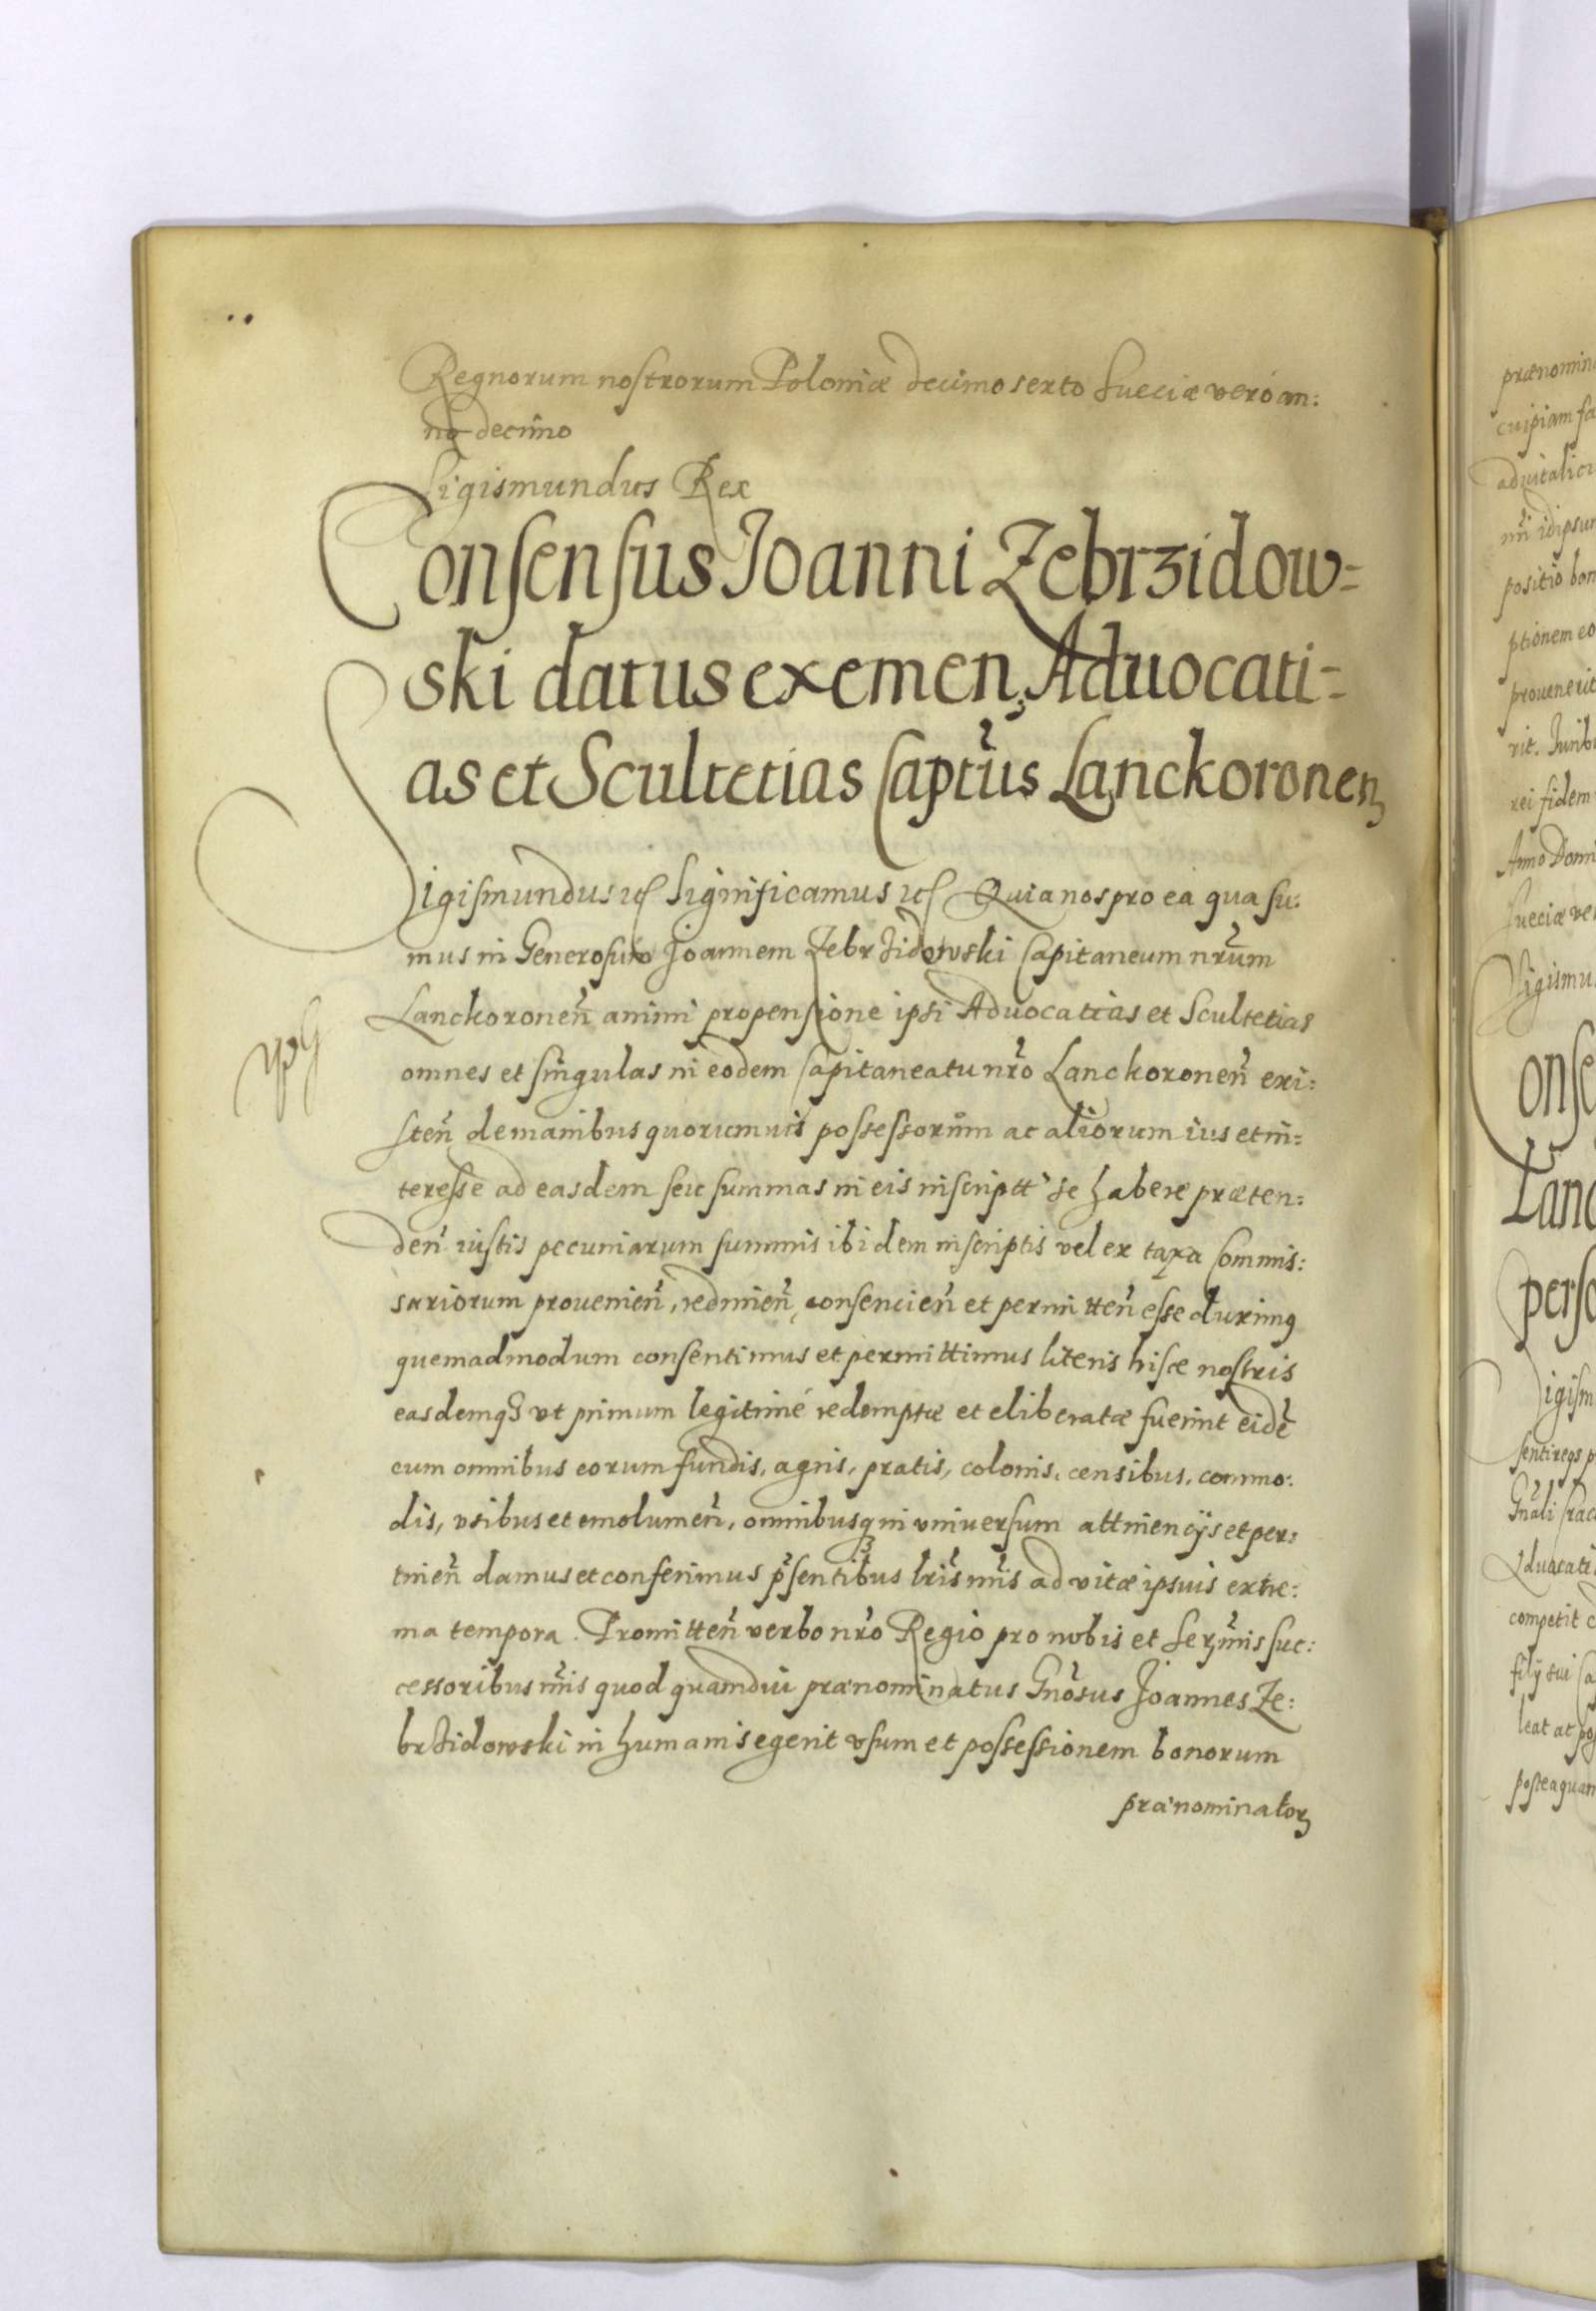 Regnorum nostrorum Poloniæ decimosexto Sueciæ veró an:
no decimo
Sigismundus Rex
Consensus Joanni Zebrzidow=
ski datus exemen, Aduocati=
as et Scultetias Captũs Lanckoronen
Sigismundus etc Significamus etc Quia nos pro ea qua su:
mus in Generosum Joannem Zebrzidowski Capitaneum nr̃um
Lanckoronen̄ animi propensione ipsi Aduocatias et Scultetias
omnes et singulas in eodem Capitaneatu nr̃o Lanckoronen̄ exi:
sten̄ de manibus quorumuis possessorum ac aliorum ius et in=
teresse ad easdem seu summas in eis inscriptt se habere præten:
den̄ iustis pecuniarum summis ibidem inscriptis vel ex taxa Commis:
sariorum prouenien̄, redimen̄, consencien̄ et permitten̄ esse duximq
quemadmodum consentimus et permittimus literis hisce nostris
easdemqꝫ vt primum legitimé redemptæ et eliberatæ fuerint eidē
cum omnibus eorum fundis, agris, pratis, colonis, censibus, commo:
dis, vsibus et emolumen̄, omnibusqꝫ in vniuersum attinencijs et per:
tinen̄ damus et conferimus p̃sentibus lr̃is nr̃is ad vitæ ipsuis extre:
ma tempora. Promitten̄ verbo nr̃o Regio pro nobis et Serm̃is suc:
cessoribus nr̃is quod quamdiu prænominatus Gnõsus Joannes Ze:
brzidowski in humanis egerit vsum et possessionem bonorum
prænominator
prænomin
cuipiam fa
aduitalici
nr̃i idipsum
positio bon
ptionem eo
prouenerit
rit. Iurib
rei fidem
Anno Domi
Sueciæ ve
Sigismu
Conse
Lanc
perso
Sigism
sentireqs p
Gnãli Crac
Aduocati
competit c
filij sui Ca
leat ac pos
posteaquam